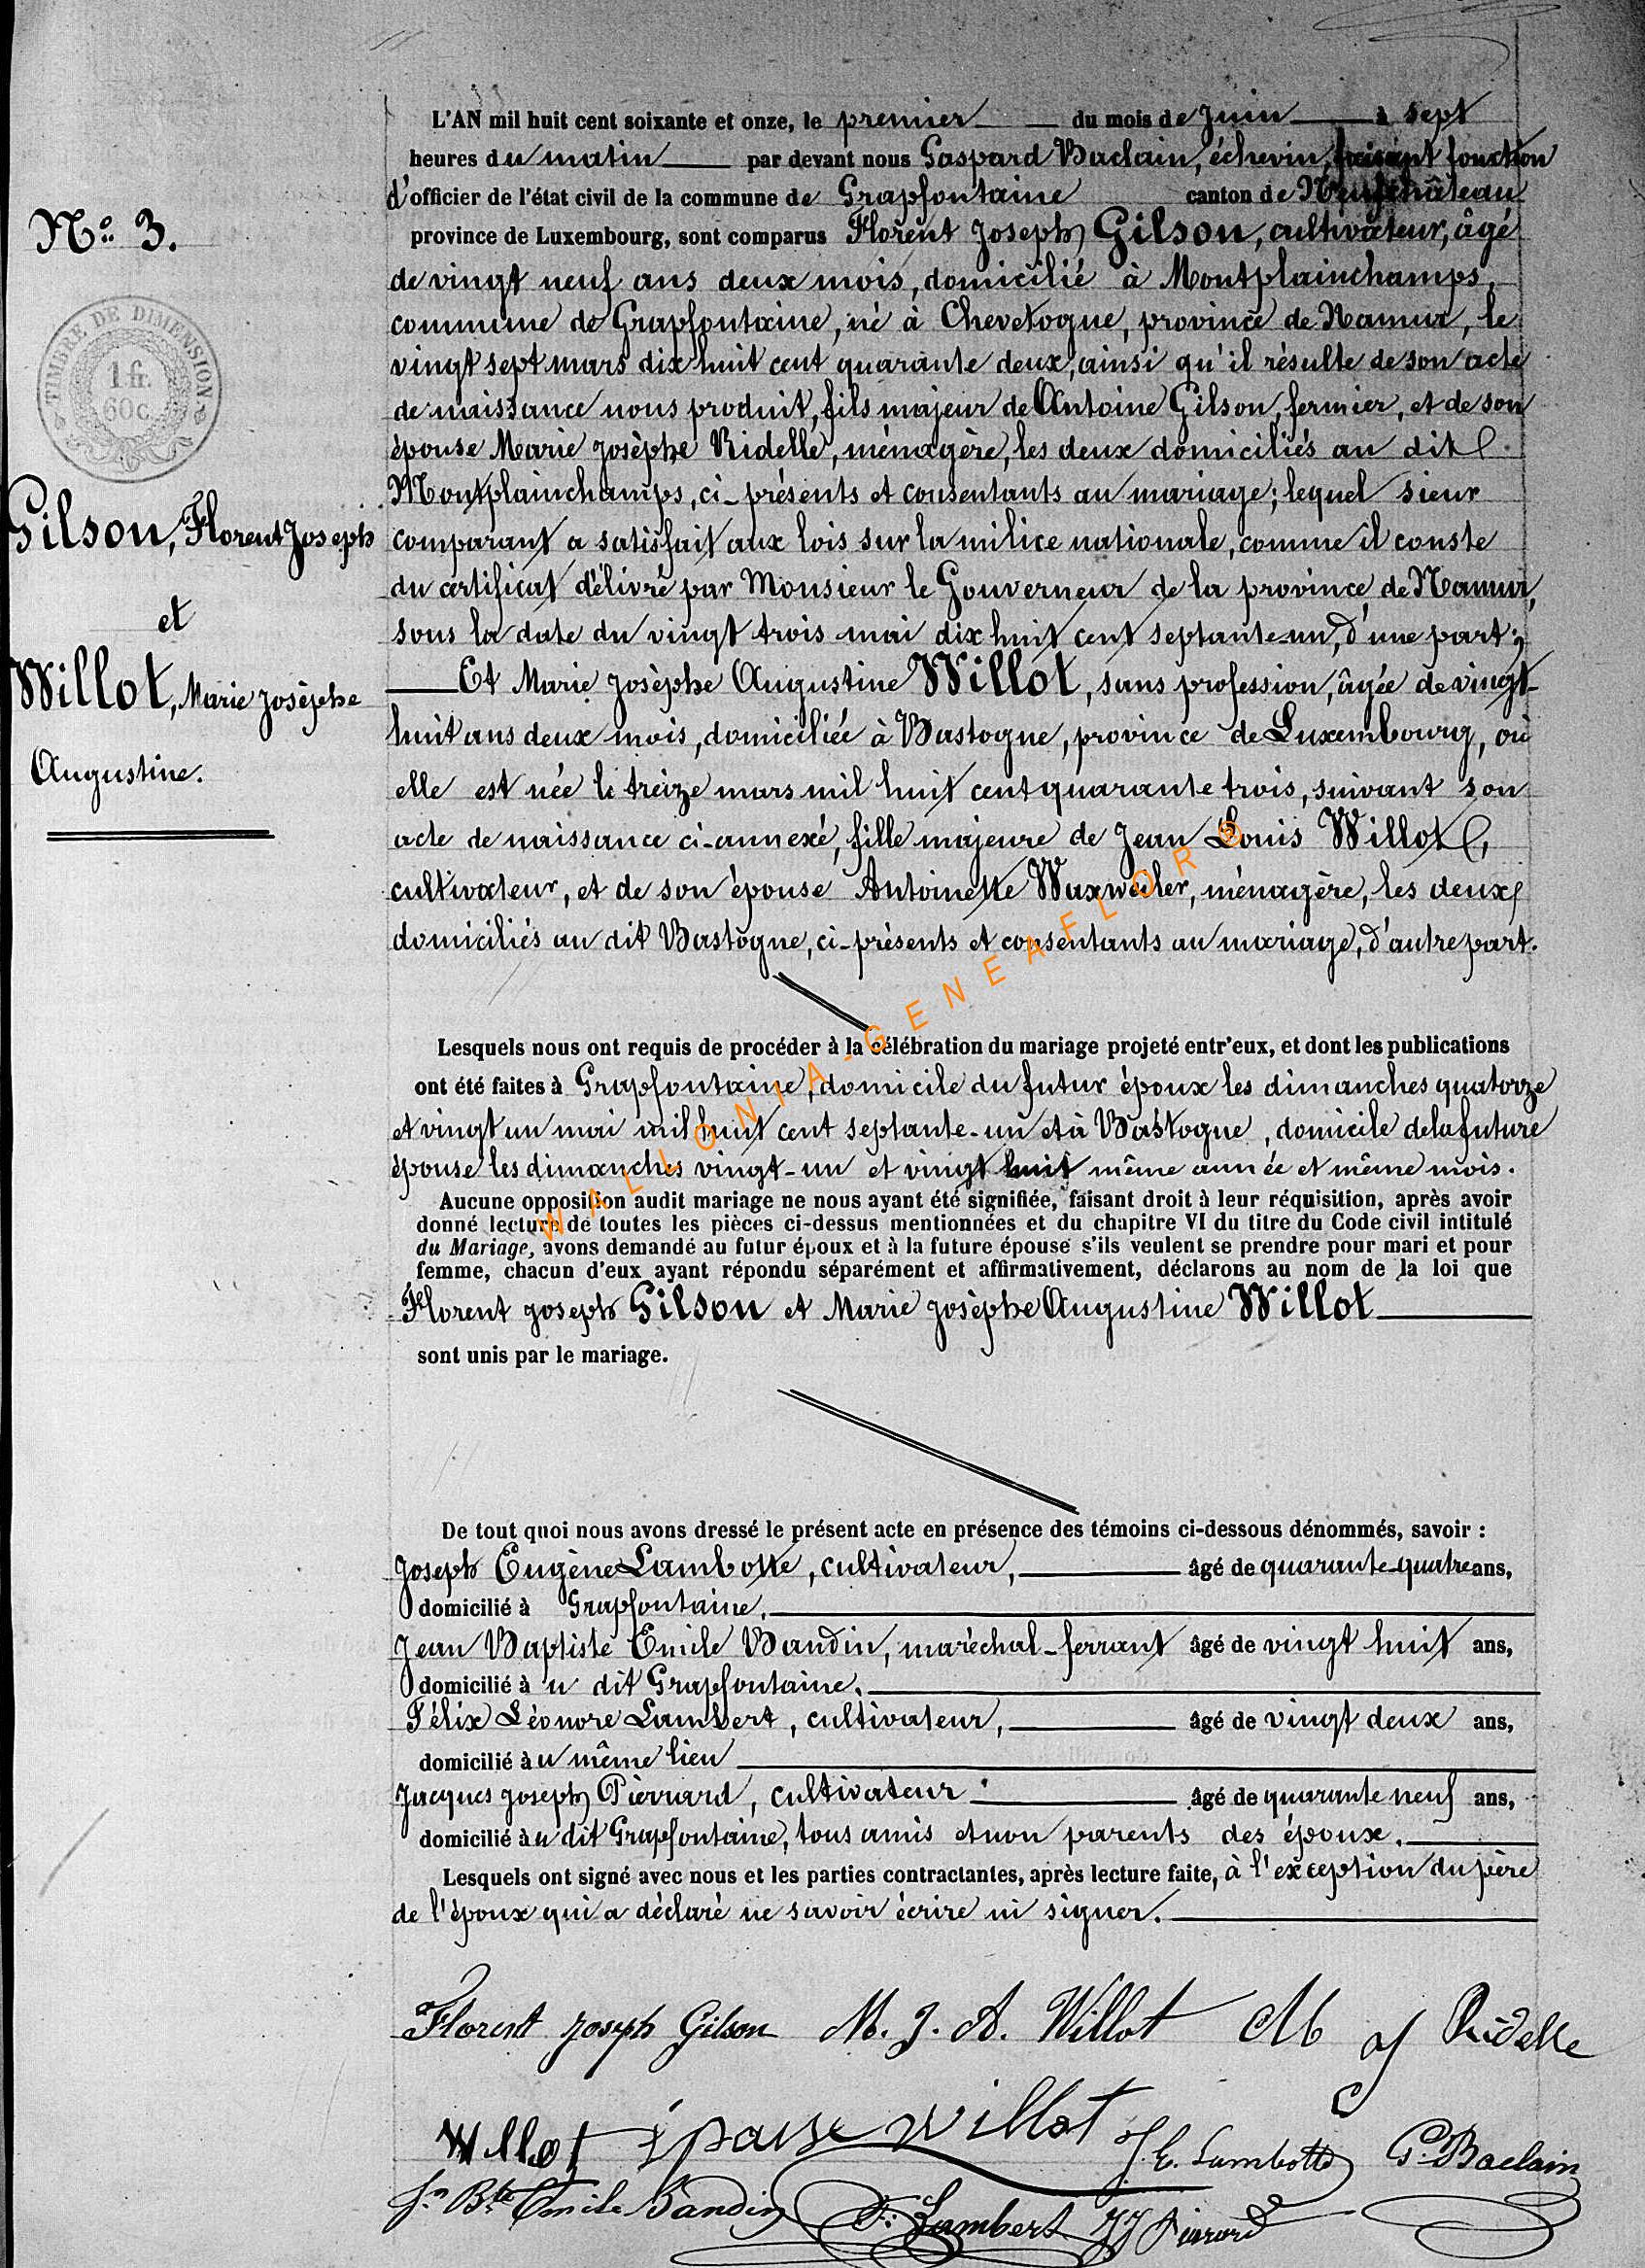 L'AN mil huit cent soixante et onze, le premier du mois de Juin à sept
heures du matin par devant nous Gaspard Baclain, échevin, faisant fonction
d'officier de l'état civil de la commune de Grapfontaine canton de Neufchâteau
province de Luxembourg, sont comparus Florent Joseph Gilson, cultivateur, âgé
de vingt neuf ans deux mois, domicilié à Montplainchamps,
commune de Grapfontaine, né à Chevetogne, province de Namur, le
vingt sept mars dix huit cent quarante deux, ainsi qu'il résulte de son acte
de naissance nous produit, fils majeur de Antoine Gilson, fermier, et de son
épouse Marie Josèphe Ridelle, ménagère, les deux domiciliés au dit
Montplainchamps, ci-présents et consentants au mariage; lequel sieur
comparant a satisfait aux lois sur la milice nationale, comme il conste
du certificat délivré par Monsieur le Gouverneur de la province de Namur,
sous la date du vingt trois mai dix huit cent septante-un, d'une part;
Et Marie Josèphe Augustine Willot, sans profession, âgée de vingt-
huit ans deux mois, domiciliée à Bastogne, province de Luxembourg, où
elle est née le treize mars mil huit cent quarante trois, suivant son
acte de naissance ci-annexé, fille majeure de Jean Louis Willot,
cultivateur, et de son épouse Antoinette Waxweiler, ménagère, les deux
domiciliés au dit Bastogne, ci-présents et consentants au mariage, d'autre part.
N° 3.
TIMBRE DE DIMENSION
1 fr.
60 c.
Gilson, Florent Joseph
et
Willot, Marie Josèphe
Augustine.
WALLONIA-GENEAFLOR®
Lesquels nous ont requis de procéder à la célébration du mariage projeté entr'eux, et dont les publications
ont été faites à Grapfontaine, domicile du futur époux les dimanches quatorze
et vingt un mai mil huit cent septante-un et à Bastogne, domicile de la future
épouse les dimanches vingt-un et vingt huit même année et même mois.
Aucune opposition audit mariage ne nous ayant été signifiée, faisant droit à leur réquisition, après avoir
donné lecture de toutes les pièces ci-dessus mentionnées et du chapitre VI du titre du Code civil intitulé
du Mariage, avons demandé au futur époux et à la future épouse s'ils veulent se prendre pour mari et pour
femme, chacun d'eux ayant répondu séparément et affirmativement, déclarons au nom de la loi que
Florent Joseph Gilson et Marie Josèphe Augustine Willot
sont unis par le mariage.
De tout quoi nous avons dressé le présent acte en présence des témoins ci-dessous dénommés, savoir :
Joseph Eugène Lambotte, cultivateur, âgé de quarante-quatre ans,
domicilié à Grapfontaine,
Jean Baptiste Emile Bandin, maréchal-ferrant âgé de vingt huit ans,
domicilié à u dit Grapfontaine,
Félix Léonore Lambert, cultivateur, âgé de vingt deux ans,
domicilié à u même lieu
Jacques Joseph Pierrard, cultivateur âgé de quarante neuf ans,
domicilié à u dit Grapfontaine, tous amis et non parents des époux.
Lesquels ont signé avec nous et les parties contractantes, après lecture faite, à l'exception du père
de l'époux qui a déclaré ne savoir écrire ni signer.
Florent Joseph Gilson M. J. A. Willot M J Ridelle
Willot épouse Willot J. E. Lambotte G. Baclain
Jn Bte Emile Bandin F. Lambert JJ Pierard